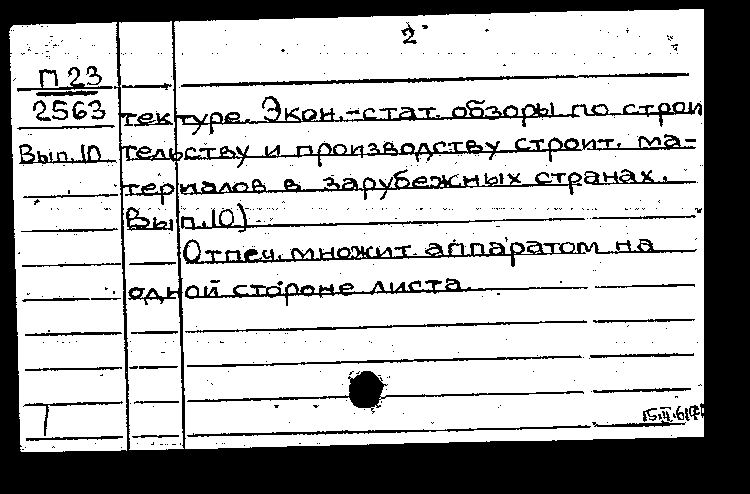 2
П 23
2563
Вып. 10
тектуре. Экон.-стат. обзоры по строи
тельству и производству строит. ма-
териалов в зарубежных странах.
Вып. 10)
Отпеч. множит. аппаратом на
одной стороне листа.